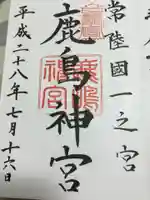 常陸國一之宮
鹿島神宮
平成二十八年七月十六日